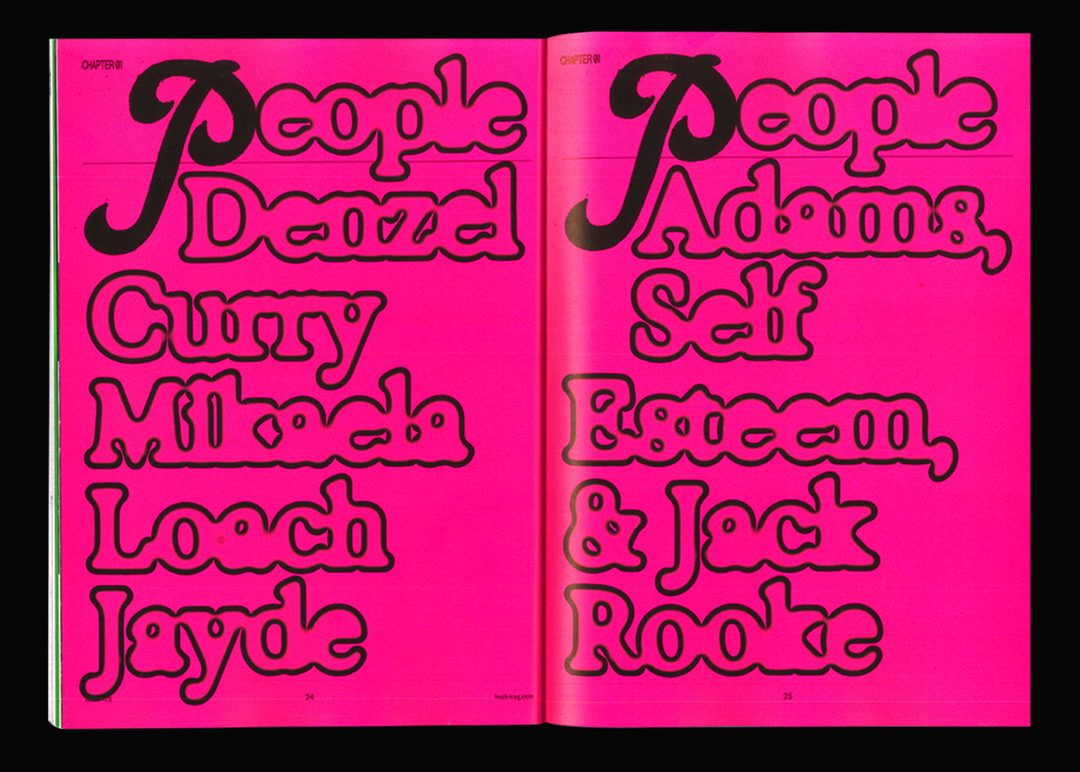 CHAPTER 01
People
Denzel
Curry
Mikaela
Loach
Jayde
24
huckmag.com
CHAPTER 01
People
Adams,
Self
Esteem,
& Jack
Rooke
25